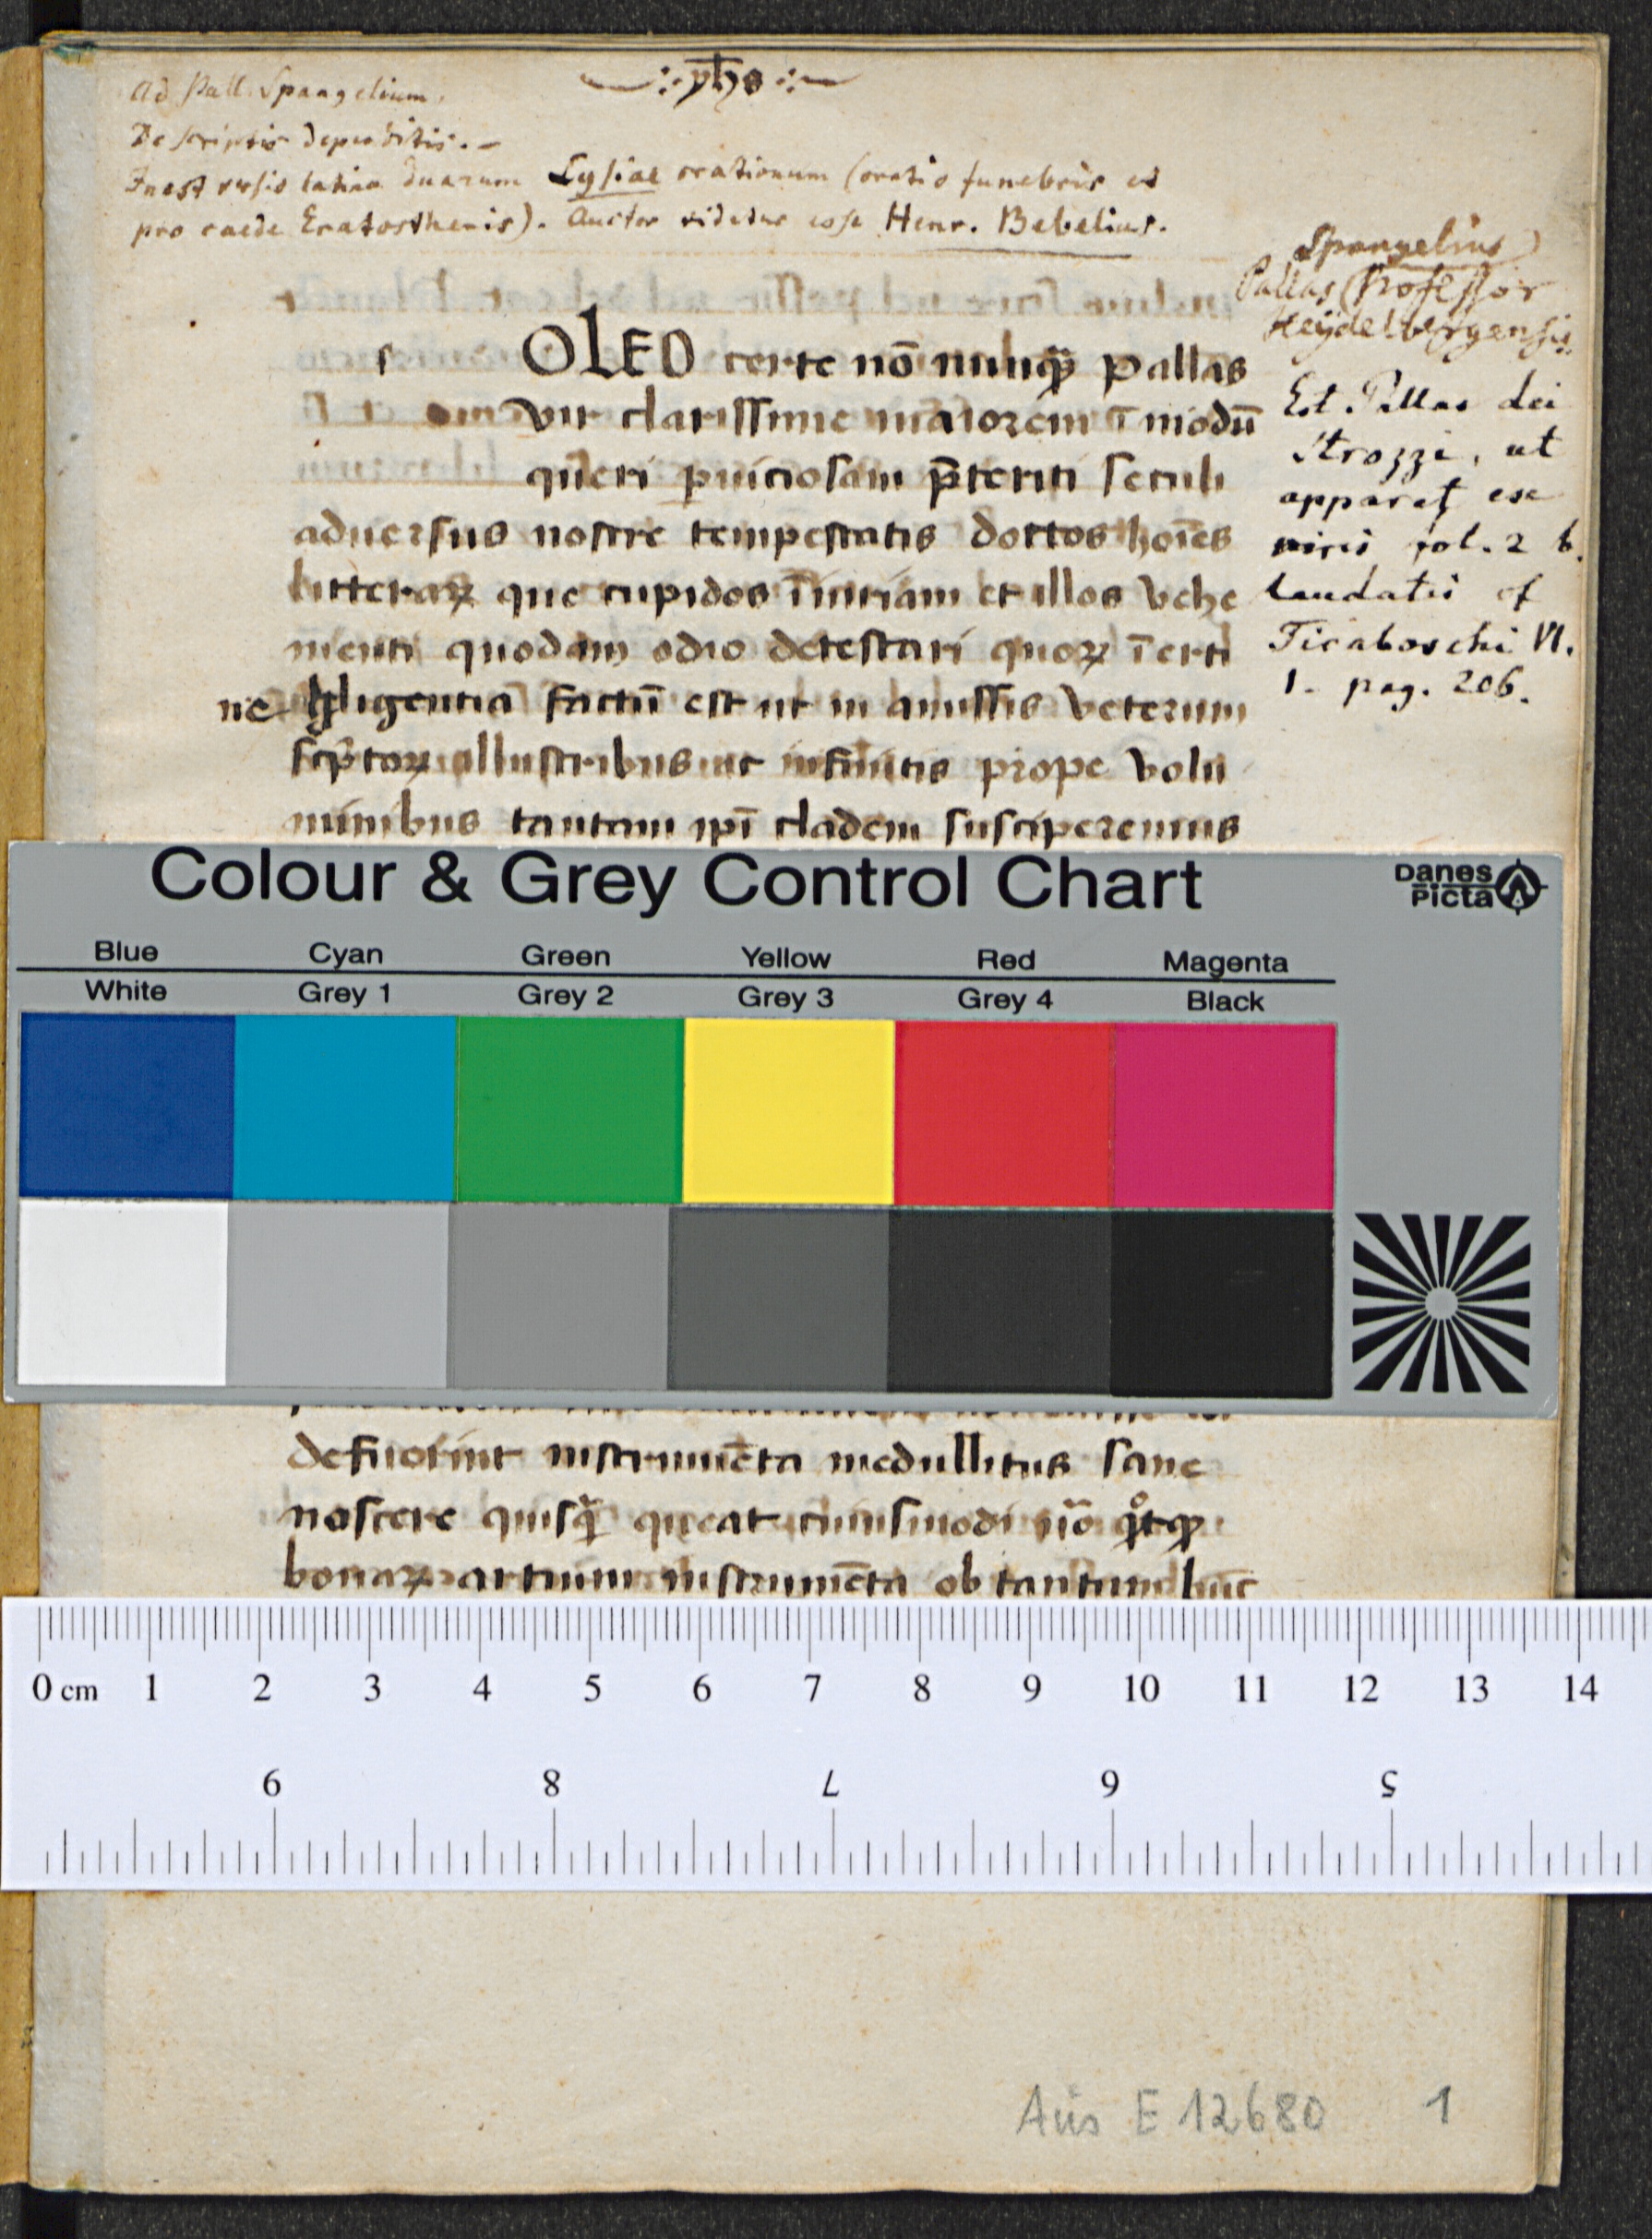 ·:· yhs ·:·
Ad Pall. Spangelium.
De scriptis deperditis. –
Inest versio latina duarum Lysiae orationum (oratio funebris et
pro caede Eratosthenis). Auctor videtur esse Henr. Bebelius.
Spangelius
Pallas Professor
Heydelbergensis.
Est Pallas dei
Strozzi, ut
apparet ex
viris fol. 2 b.
laudatis cf
Tiraboschi VI.
1. pag. 206.
s OLEO certe nō nunꝙ̄ pallas
vir clarissime maiorem ī modū
queri ꝑniciosam p̄teriti seculi
aduersus nostre tempestatis doctos hoīes
litteraꝝ que cupidos īiuriam et illos vehe
menti quodam odio detestari quoꝝ īerti
ne gligentia factū est ut in amissis veterum
scp̄toꝝ illustribus ac infinitis prope volu
minibus tantam ipī cladem susciperemus
Colour & Grey Control Chart
Danes
Picta
Blue Cyan Green Yellow Red Magenta
White Grey 1 Grey 2 Grey 3 Grey 4 Black
defuerint instrumēta medullitus sane
noscere quisꝗ̄ queat cuiusmodi
bonaꝝ artium instrumēta ob tantum huic
0 cm 1 2 3 4 5 6 7 8 9 10 11 12 13 14
9 8 7 6 5
Aus E 12680 1